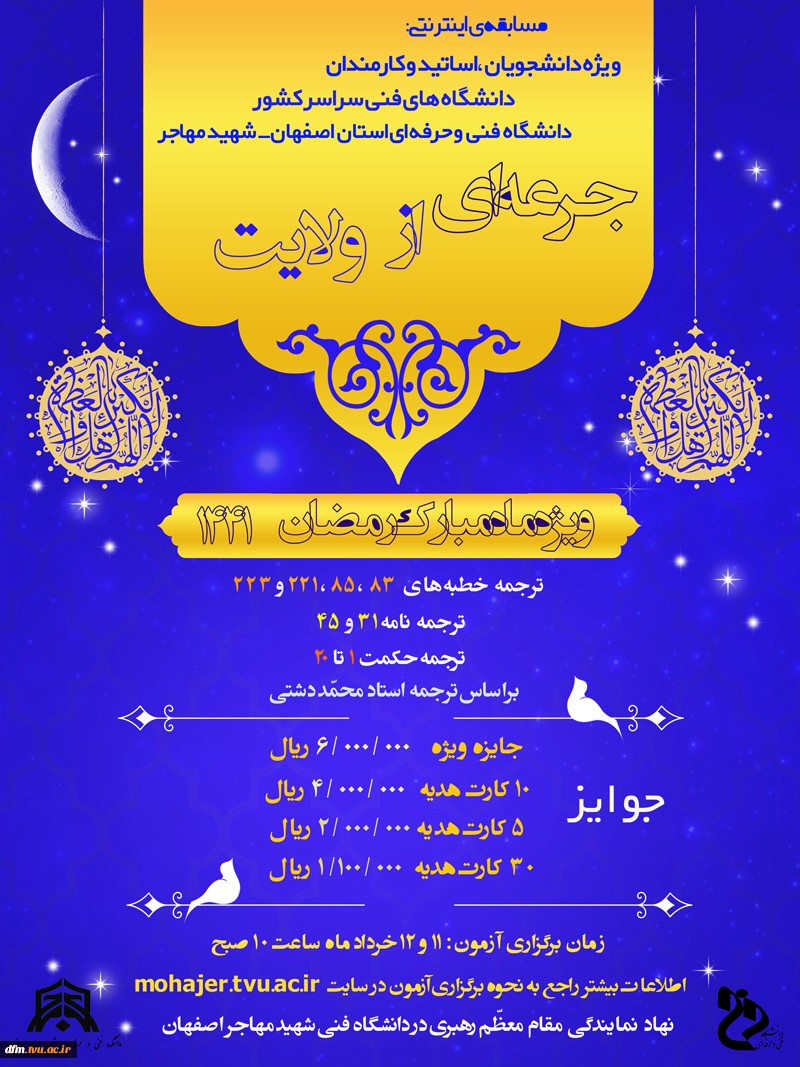 مسابقه‌ی اینترنتی:
ویژه دانشجویان، اساتید و کارمندان
دانشگاه های فنی سراسر کشور
دانشگاه فنی و حرفه ای استان اصفهان_ شهید مهاجر
جرعه‌ای از ولایت
ویژه ماه مبارک رمضان ۱۴۴۱
ترجمه خطبه های ۸۳، ۸۵، ۲۲۱ و ۲۲۳
ترجمه نامه ۳۱ و ۴۵
ترجمه حکمت ۱ تا ۲۰
براساس ترجمه استاد محمّد دشتی
جوایز
جایزه ویژه ۶/۰۰۰/۰۰۰ ریال
۱۰ کارت هدیه ۴/۰۰۰/۰۰۰ ریال
۵ کارت هدیه ۲/۰۰۰/۰۰۰ ریال
۳۰ کارت هدیه ۱/۱۰۰/۰۰۰ ریال
زمان برگزاری آزمون: ۱۱ و ۱۲ خرداد ماه ساعت ۱۰ صبح
اطلاعات بیشتر راجع به نحوه برگزاری آزمون در سایت mohajer.tvu.ac.ir
نهاد نمایندگی مقام معظّم رهبری در دانشگاه فنی شهید مهاجر اصفهان
dfm.tvu.ac.ir